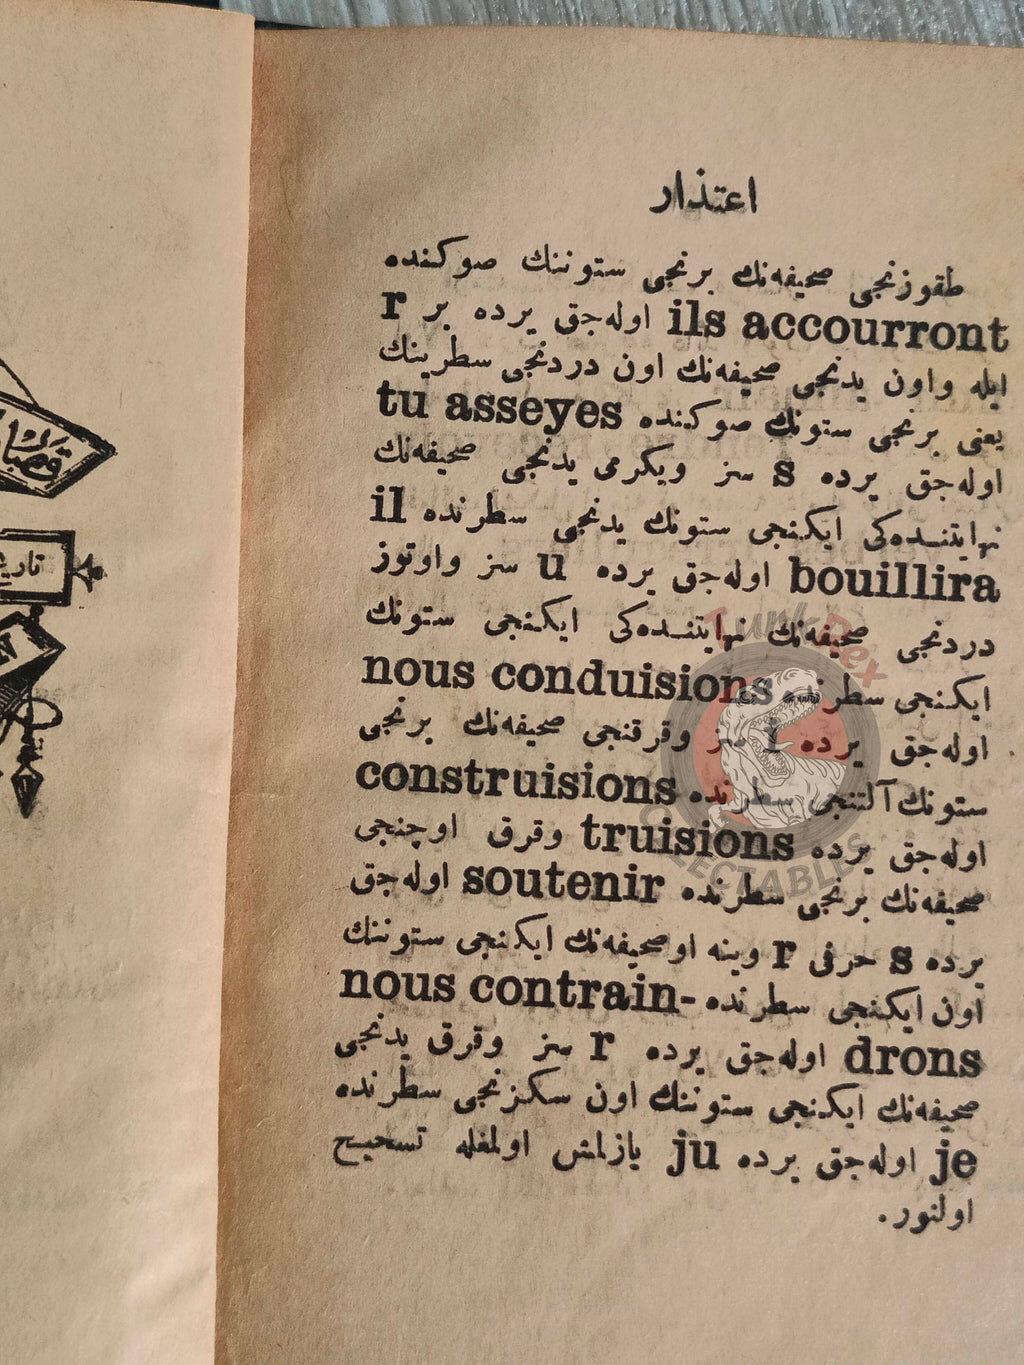 اعتذار
طقوزنجی صحیفه‌نك برنجی ستوننك صوكنده
ils accourront اوله‌جق یرده بر r
ایله واون یدنجی صحیفه‌نك اون دردنجی سطرینك
یعنی برنجی ستونك صوكنده tu asseyes
اوله‌جق یرده s سز ویكرمی یدنجی صحیفه‌نك
نهایتنده‌كی ایكنجی ستونك یدنجی سطرنده il
bouillira اوله‌جق یرده u سز واوتوز
دردنجی صحیفه‌نك نهایتنده‌كی ایكنجی ستونك
ایكنجی سطرنده nous conduisions
اوله‌جق یرده i سز وقرقنجی صحیفه‌نك برنجی
ستونك آلتنجی سطرنده construisions
اوله‌جق یرده truisions وقرق اوچنجی
صحیفه‌نك برنجی سطرنده soutenir اوله‌جق
یرده s حرفی r وینه اوصحیفه‌نك ایكنجی ستوننك
اون ایكنجی سطرنده nous contrain-
drons اوله‌جق یرده r سز وقرق یدنجی
صحیفه‌نك ایكنجی ستوننك اون سكزنجی سطرنده
je اوله‌جق یرده ju یازلمش اولمغله تسحیح
اولنور.
Junk Rex
COLLECTABLES